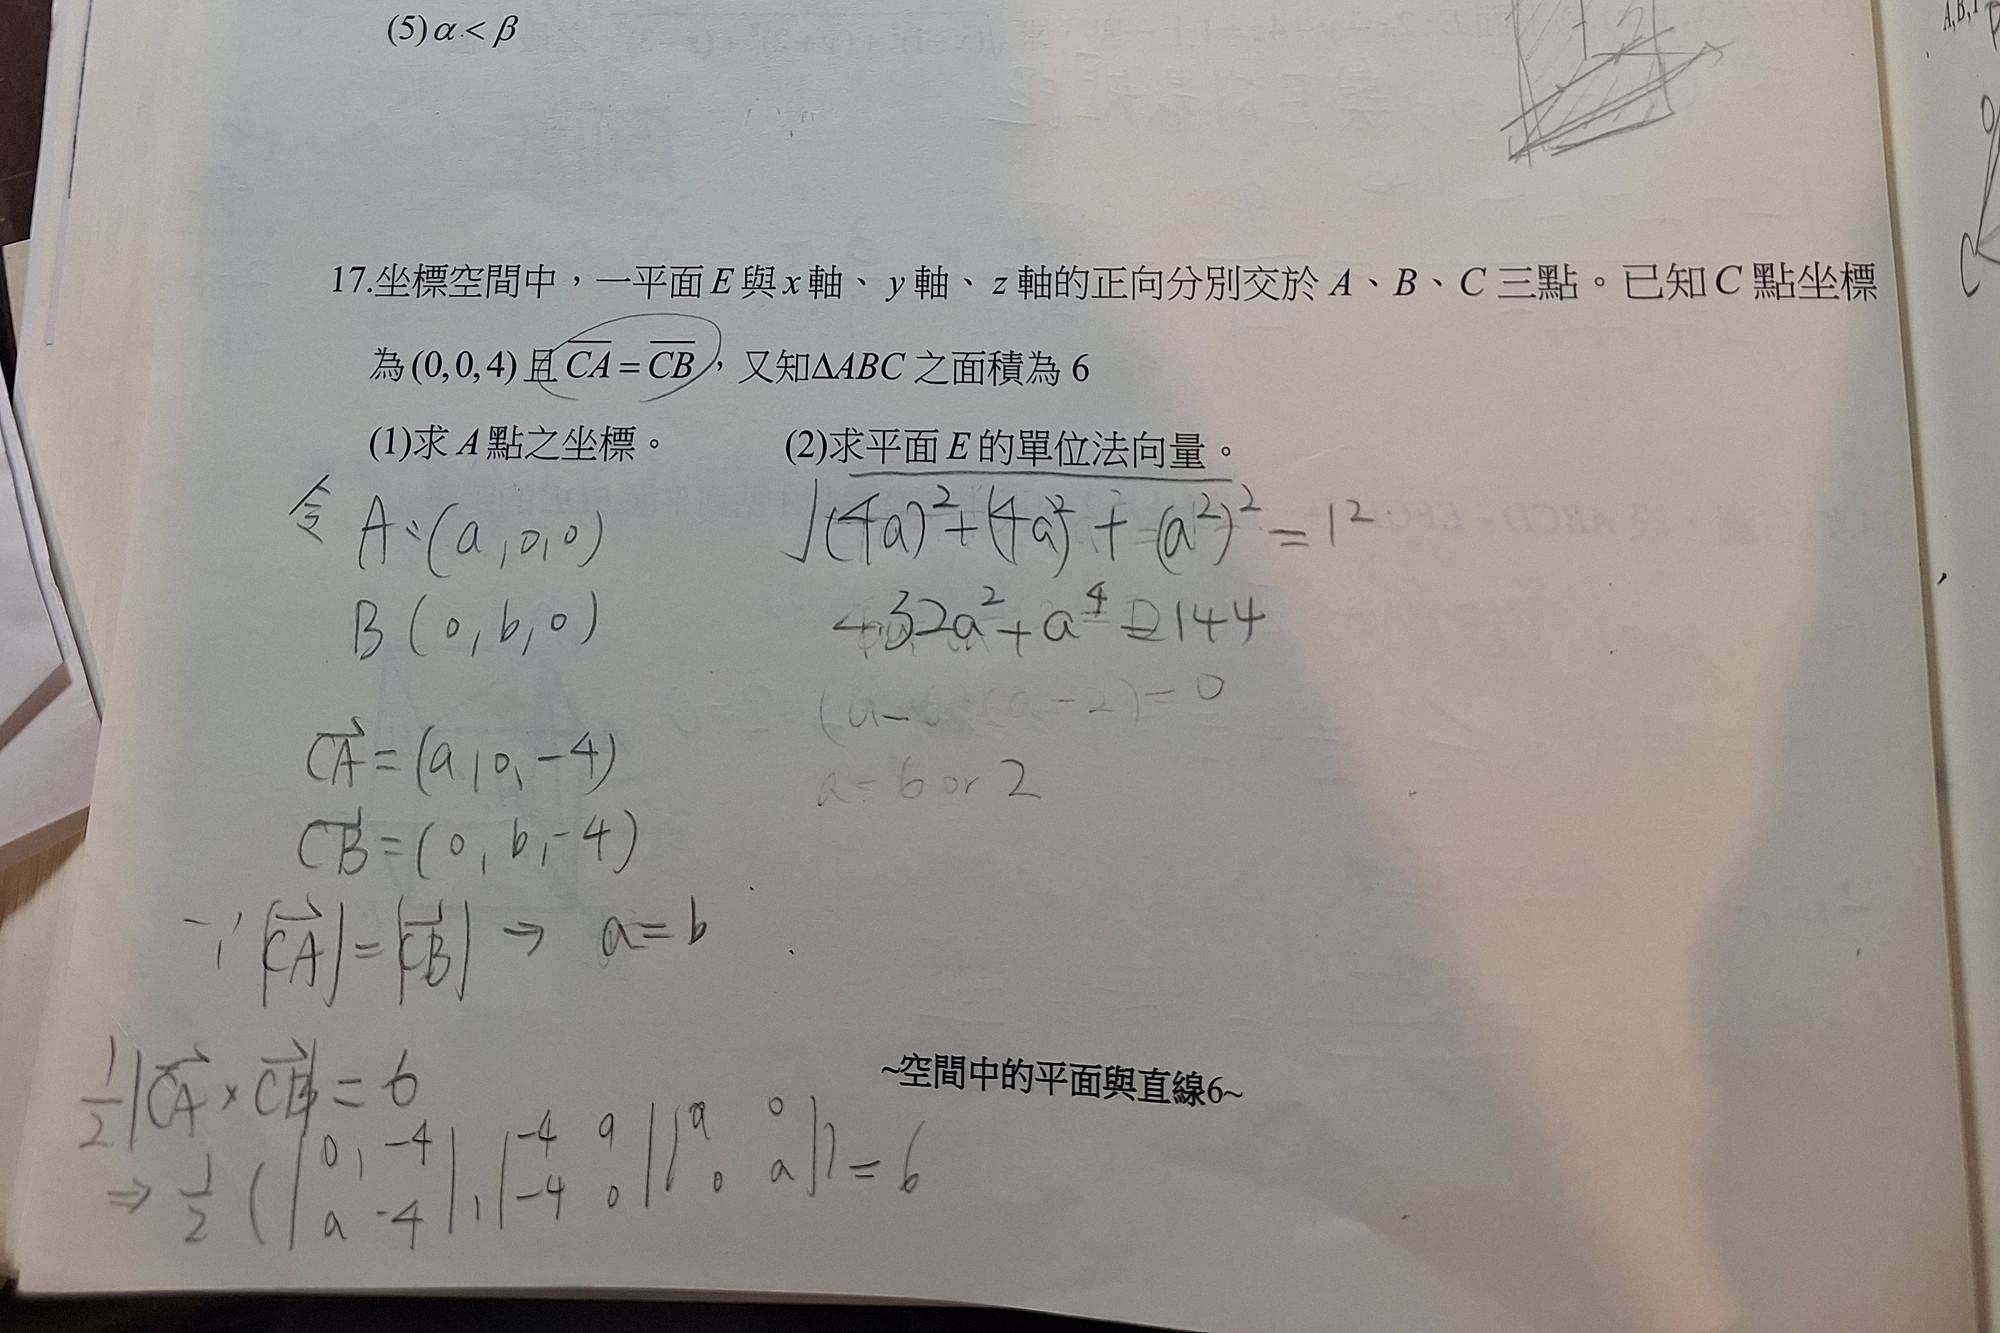 (5) α < β
17.坐標空間中，一平面 E 與 x 軸、y 軸、z 軸的正向分別交於 A、B、C 三點。已知 C 點坐標
為 (0,0,4) 且 CA = CB，又知 ΔABC 之面積為 6
(1)求 A 點之坐標。 (2)求平面 E 的單位法向量。
令 A:(a,0,0)
B(0,b,0)
CA = (a,0,-4)
CB = (0,b,-4)
∵ |CA| = |CB| ⇒ a = b
1/2 |CA × CB| = 6
⇒ 1/2 ( | 0, -4 | , | -4 a | | a 0 | ) = 6
a -4 -4 0 0 a
√(4a)²+(4a)²+(a²)² = 12
32a²+a⁴=144
(a-6)(a-2)=0
a=6 or 2
~空間中的平面與直線6~
A,B,
C